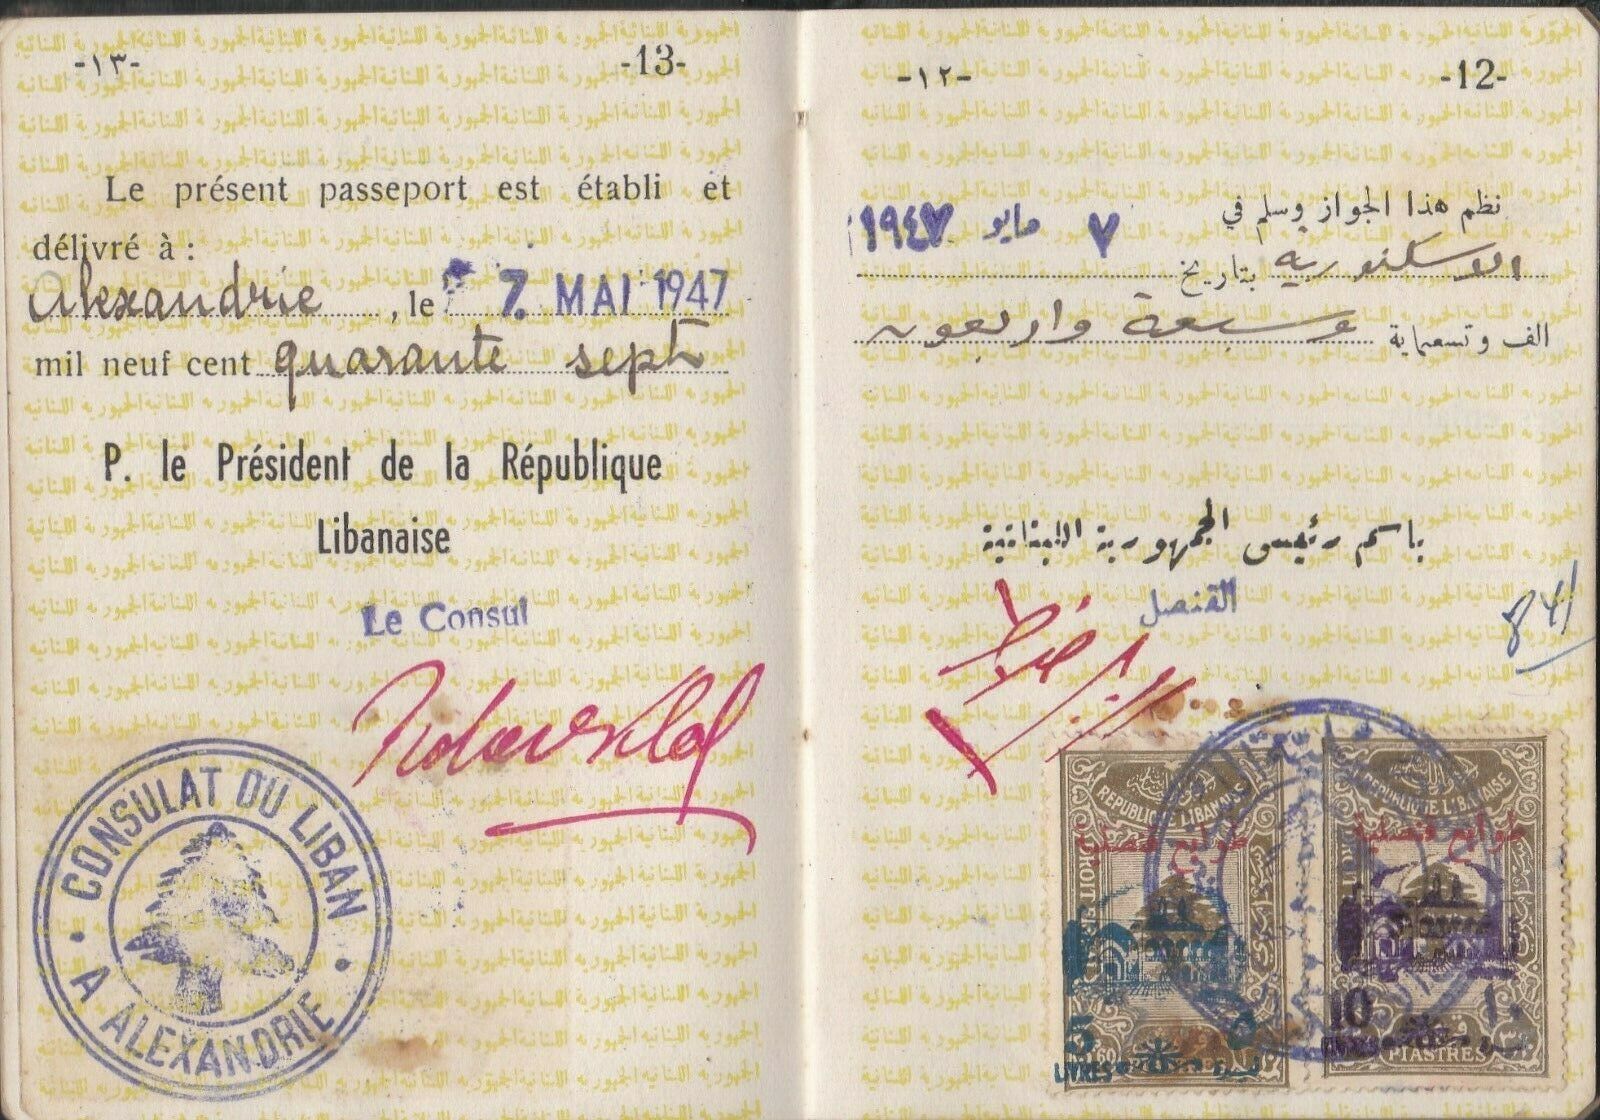 -١٣- -13-
Le présent passeport est établi et
délivré à :
Alexandrie, le 7. MAI 1947
mil neuf cent quarante sept
P. le Président de la République
Libanaise
Le Consul
CONSULAT DU LIBAN
A ALEXANDRIE
-١٢- -12-
نظم هذا الجواز وسلم في
الاسكندرية بتاريخ ٧ مايو ١٩٤٧
الف وتسعماية وسبعة واربعون
باسم رئيس الجمهورية اللبنانية
القنصل
841
REPUBLIQUE LIBANAISE
طوابع قنصلية
5
LIVRES
REPUBLIQUE LIBANAISE
طوابع قنصلية
10
PIASTRES